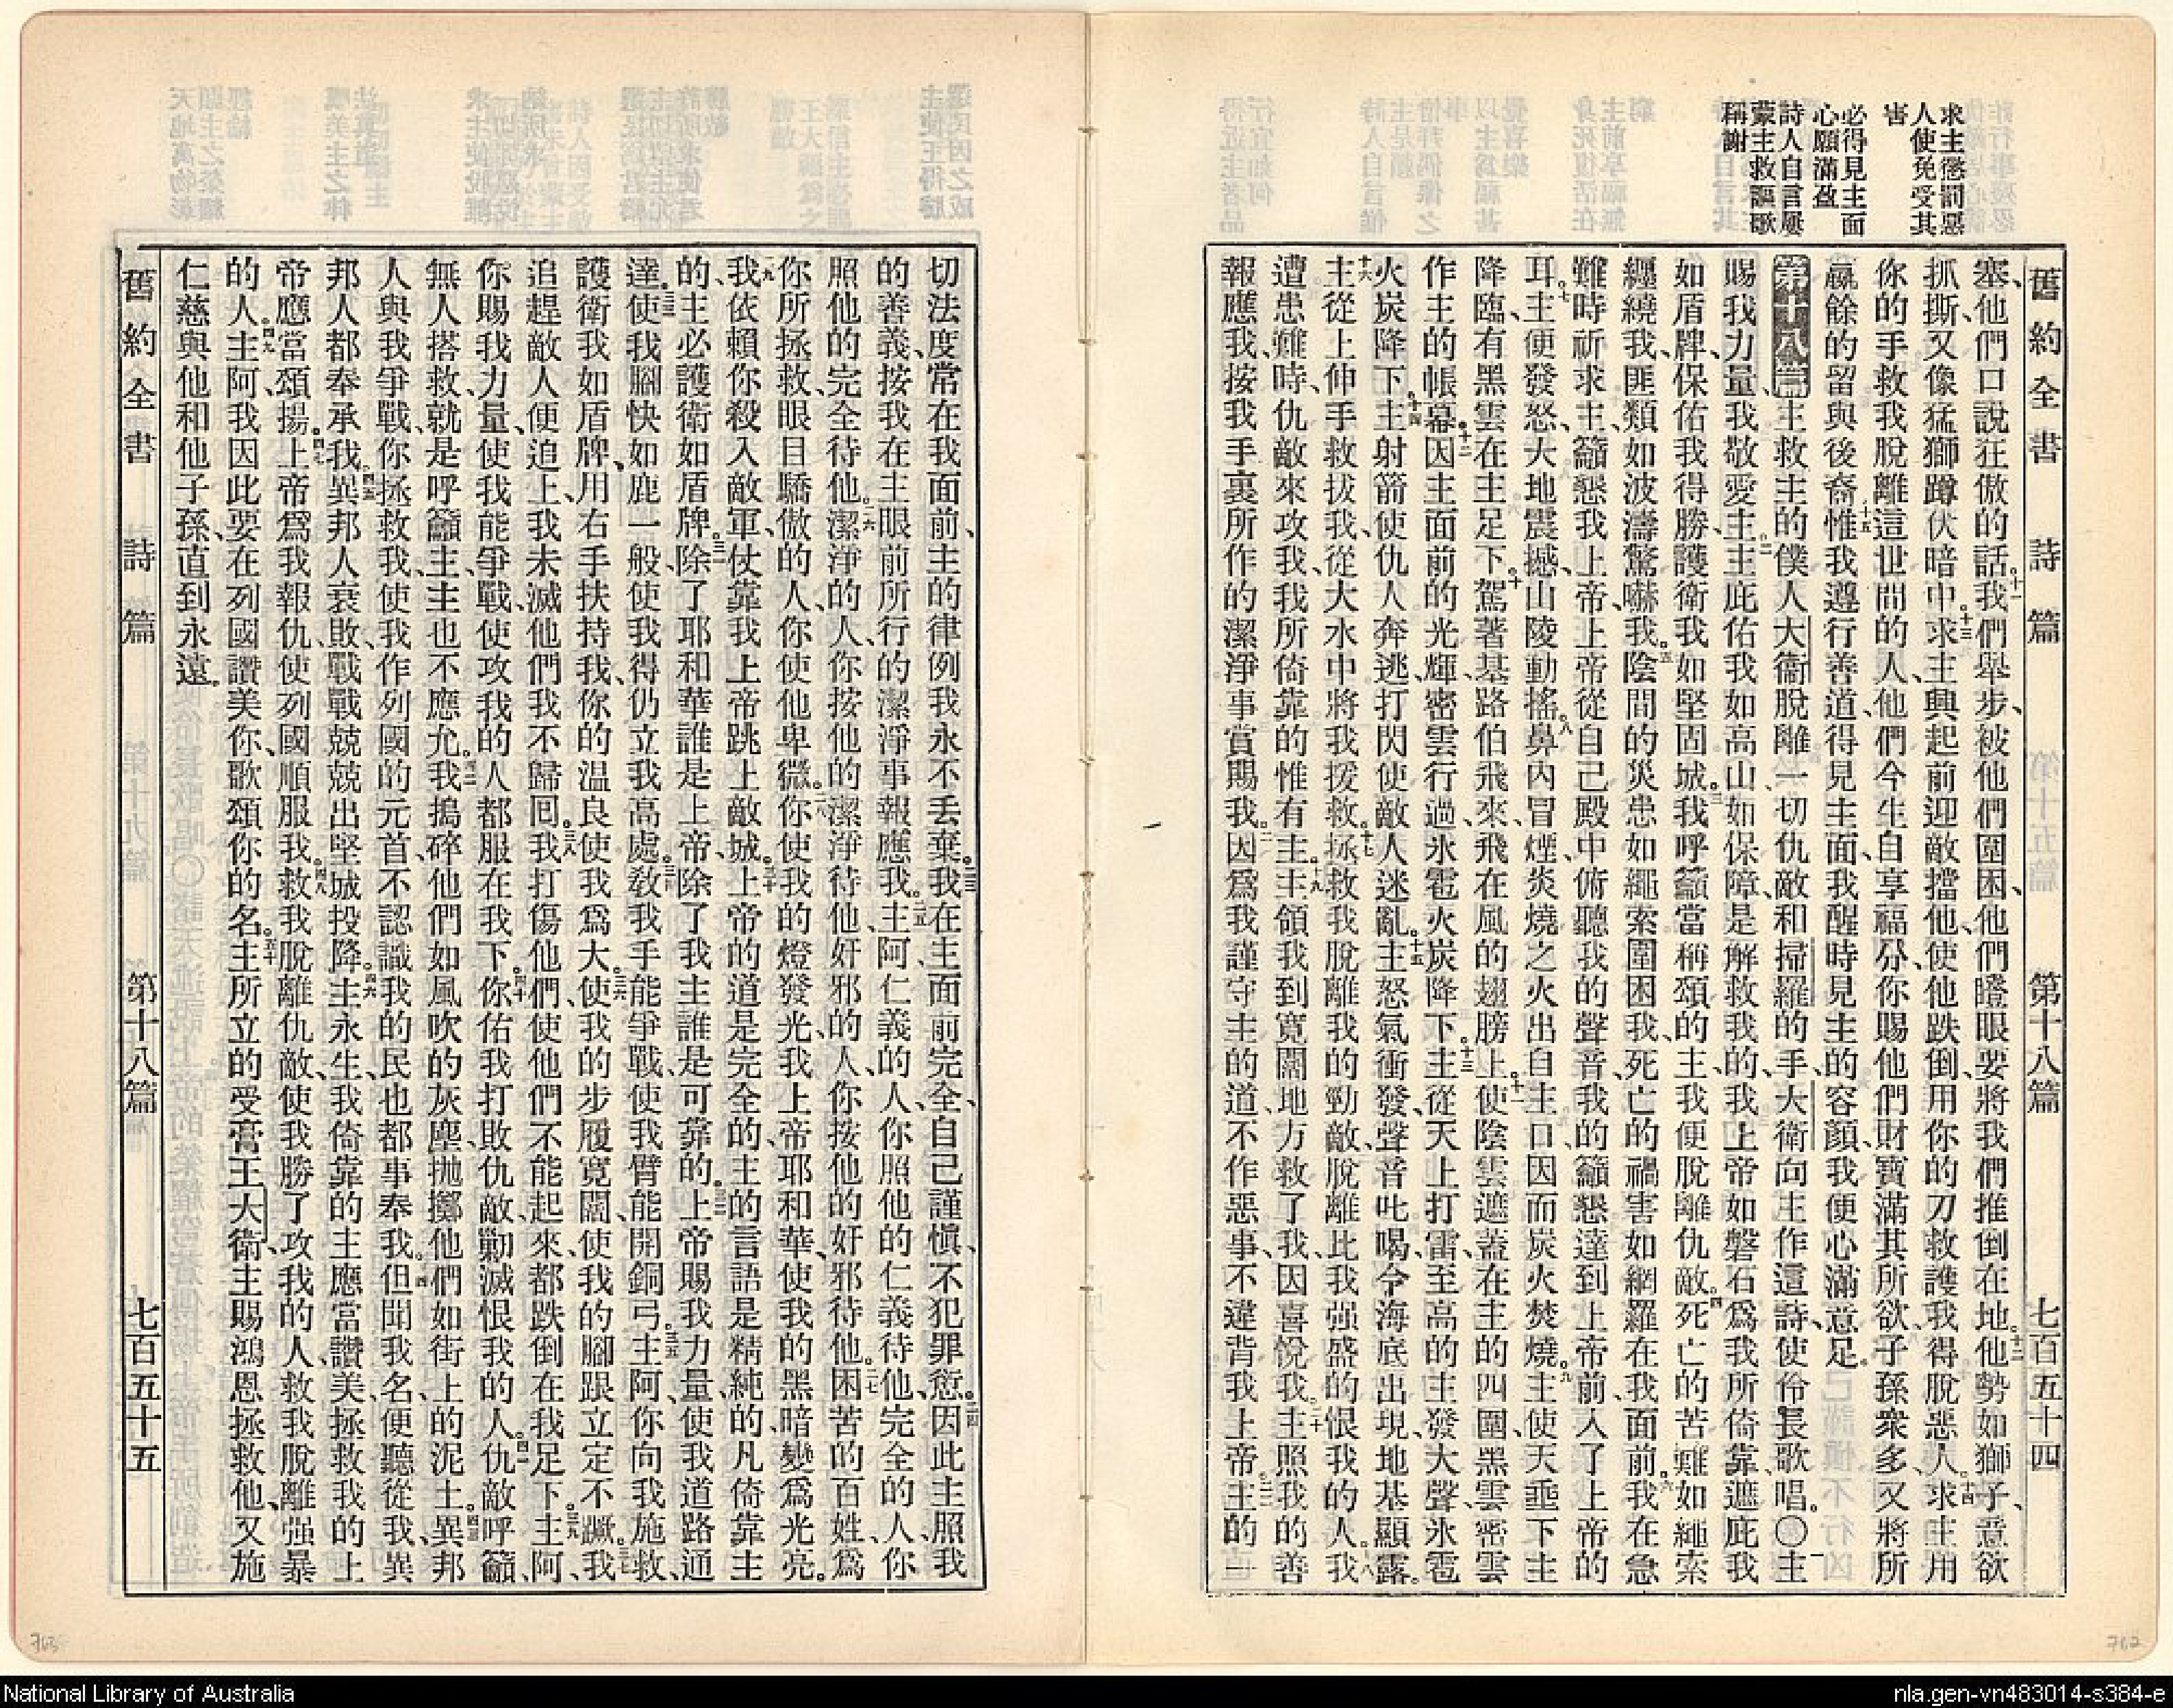 舊約全書 詩篇 第十八篇 七百五十四
求主懲罰惡
人使免受其
害
必得見主面
心願滿盈
詩人自言屢
蒙主救謳歌
稱謝
塞、他們口說狂傲的話。十一我們舉步、被他們圍困、他們瞪眼要將我們推倒在地。十二他勢如獅子、意欲
抓撕、又像猛獅蹲伏暗中。十三求主興起、前迎敵擋他、使他跌倒、用你的刀救護我得脫惡人。十四求主用
你的手救我脫離這世間的人、他們今生自享福分、你賜他們財寶滿其所欲、子孫衆多、又將所
贏餘的留與後裔。十五惟我遵行善道、得見主面、我醒時見主的容顏、我便心滿意足。
第十八篇 主救主的僕人大衞脫離一切仇敵和掃羅的手、大衞向主作這詩、使伶長歌唱。〇一主
賜我力量、我敬愛主。二主庇佑我如高山、如保障、是解救我的、我上帝如磐石、爲我所倚靠、遮庇我
如盾牌、保佑我得勝、護衛我如堅固城。三我呼籲當稱頌的主、我便脫離仇敵。四死亡的苦難如繩索
纏繞我、匪類如波濤驚嚇我。五陰間的災患如繩索圍困我、死亡的禍害如網羅在我面前。六我在急
難時祈求主、籲懇我上帝、上帝從自己殿中俯聽我的聲音、我的籲懇達到上帝前、入了上帝的
耳。七主便發怒、大地震撼、山陵動搖。八鼻內冒煙、炎燒之火出自主口、因而炭火焚燒。九主使天垂下、主
降臨、有黑雲在主足下。十駕著基路伯飛來、飛在風的翅膀上。十一使陰雲遮蓋在主的四圍、黑雲密雲
作主的帳幕。十二因主面前的光輝、密雲行過、氷雹火炭降下。十三主從天上打雷、至高的主發大聲、氷雹
火炭降下。十四主射箭使仇人奔逃、打閃使敵人迷亂。十五主怒氣衝發、聲音叱喝、令海底出現、地基顯露。
十六主從上伸手救拔我、從大水中將我援救。十七拯救我脫離我的勁敵、脫離比我强盛的恨我的人。十八我
遭患難時、仇敵來攻我、我所倚靠的惟有主。十九主領我到寬闊地方、救了我、因喜悅我。二十主照我的善
報應我、按我手裏所作的潔淨事賞賜我。二一因爲我謹守主的道、不作惡事、不違背我上帝。二二主的一
切法度常在我面前、主的律例我永不丟棄。二三我在主面前完全、自己謹愼、不犯罪愆。二四因此主照我
的善義、按我在主眼前所行的潔淨事報應我。二五主阿、仁義的人、你照他的仁義待他、完全的人、你
照他的完全待他。二六潔淨的人、你按他的潔淨待他、奸邪的人、你按他的奸邪待他。二七困苦的百姓、爲
你所拯救、眼目驕傲的人、你使他卑微。二八你使我的燈發光、我上帝耶和華、使我的黑暗變爲光亮。
二九我依賴你殺入敵軍、仗靠我上帝跳上敵城。三十上帝的道是完全的、主的言語是精純的、凡倚靠主
的、主必護衛如盾牌。三一除了耶和華誰是上帝、除了我主誰是可靠的。三二上帝賜我力量、使我道路通
達。三三使我腳快如鹿一般、使我得仍立我高處。三四敎我手能爭戰、使我臂能開銅弓。三五主阿、你向我施救、
護衛我如盾牌、用右手扶持我、你的温良使我爲大。三六使我的步履寬闊、使我的腳跟立定不蹶。三七我
追趕敵人便追上、我未滅他們我不歸回。三八我打傷他們、使他們不能起來、都跌倒在我足下。三九主阿、
你賜我力量、使我能爭戰、使攻我的人都服在我下。四十你佑我打敗仇敵、勦滅恨我的人。四一仇敵呼籲、
無人搭救、就是呼籲主、主也不應允。四二我搗碎他們如風吹的灰塵、拋擲他們如街上的泥土。四三異邦
人與我爭戰、你拯救我、使我作列國的元首、不認識我的民也都事奉我。四四但聞我名、便聽從我、異
邦人都奉承我。四五異邦人衰敗、戰戰兢兢出堅城投降。四六主永生、我倚靠的主應當讚美、拯救我的上
帝應當頌揚。四七上帝爲我報仇、使列國順服我。四八救我脫離仇敵、使我勝了攻我的人、救我脫離强暴
的人。四九主阿、我因此要在列國讚美你、歌頌你的名。五十主所立的受膏王大衞、主賜鴻恩拯救他、又施
仁慈與他和他子孫、直到永遠。
舊約全書 詩篇 第十八篇 七百五十五
763
762
National Library of Australia
nla.gen-vn483014-s384-e